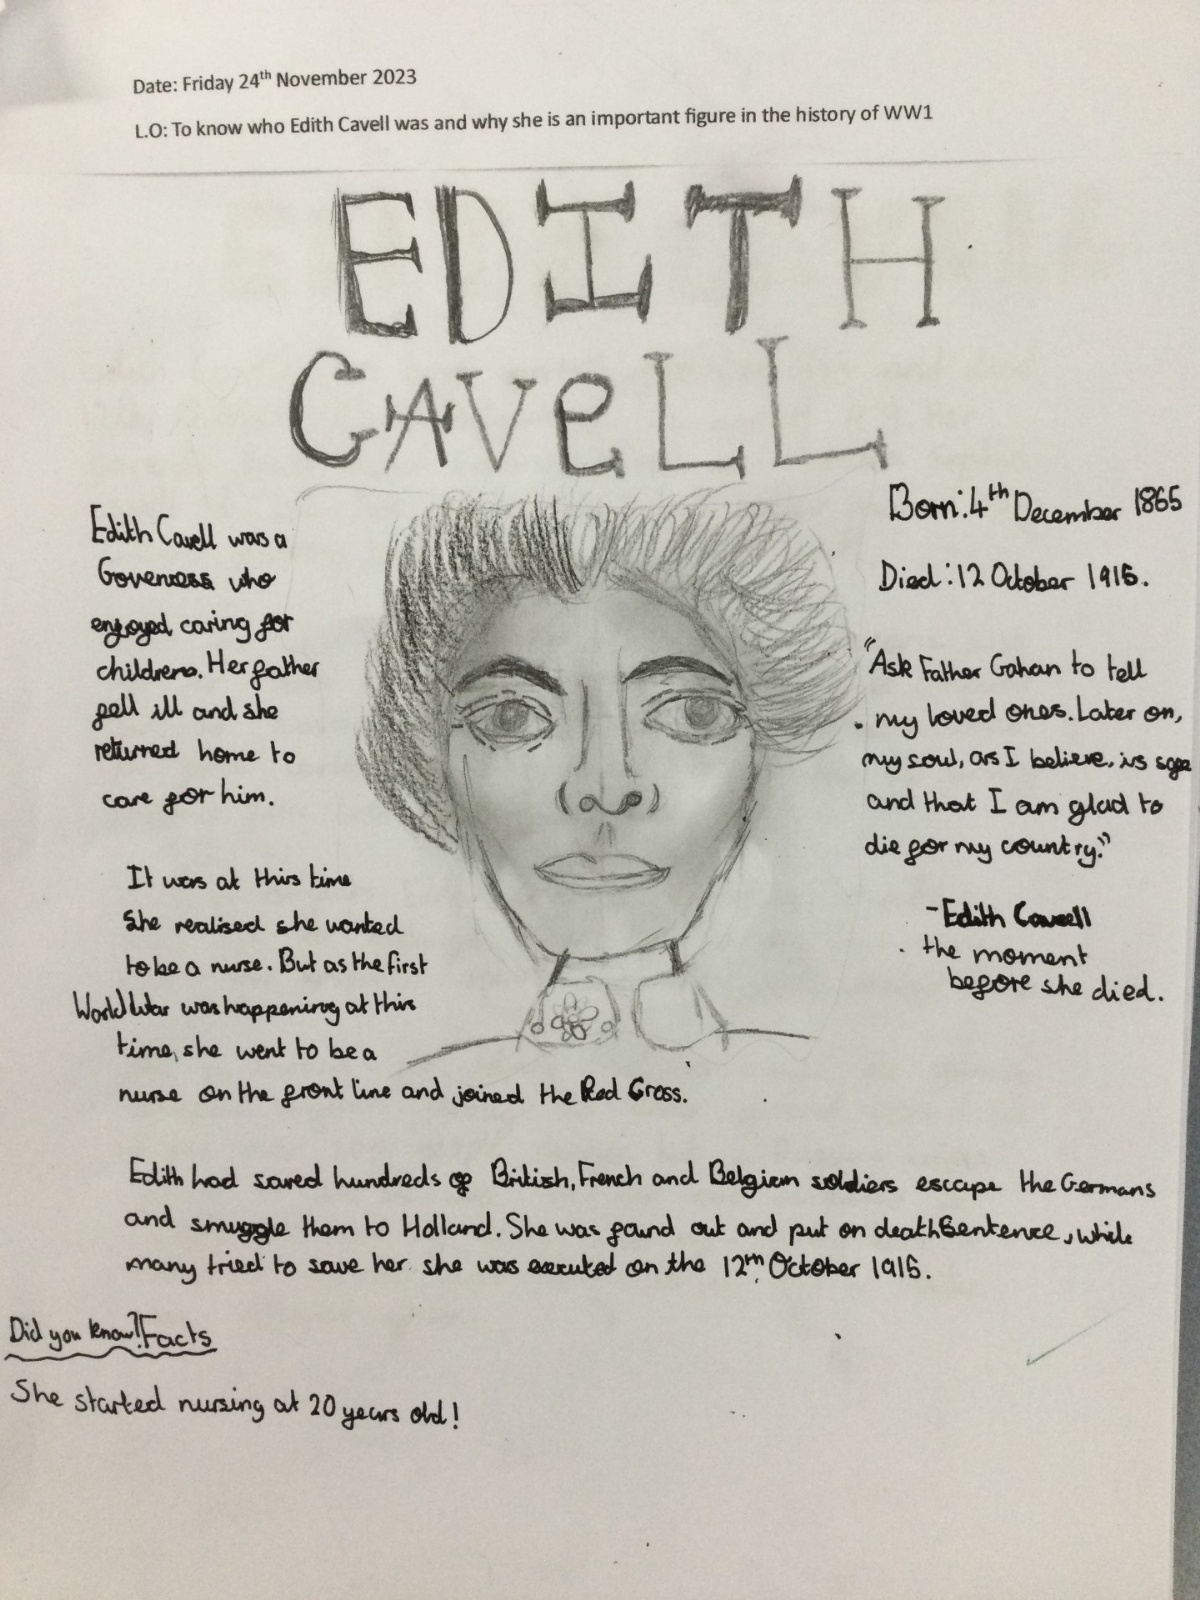 Date: Friday 24th November 2023
L.O: To know who Edith Cavell was and why she is an important figure in the history of WW1
EDITH
CAVeLL
Edith Cavell was a
Governess who
enjoyed caring for
childrens. Her father
fell ill and she
returned home to
care for him.
It was at this time
She realised she wanted
to be a nurse. But as the first
World War was happening at this
time, she went to be a
nurse on the front line and joined the Red Cross.
Born: 4th December 1865
Died: 12 October 1915.
"Ask Father Gahan to tell
my loved ones. Later on,
my soul, as I believe, is safe
and that I am glad to
die for my country."
- Edith Cavell
the moment
before she died.
Edith had saved hundreds of British, French and Belgian soldiers escape the Germans
and smuggle them to Holland. She was found out and put on death Sentence, while
many tried to save her she was executed on the 12th October 1915.
Did you know? Facts
She started nursing at 20 years old!